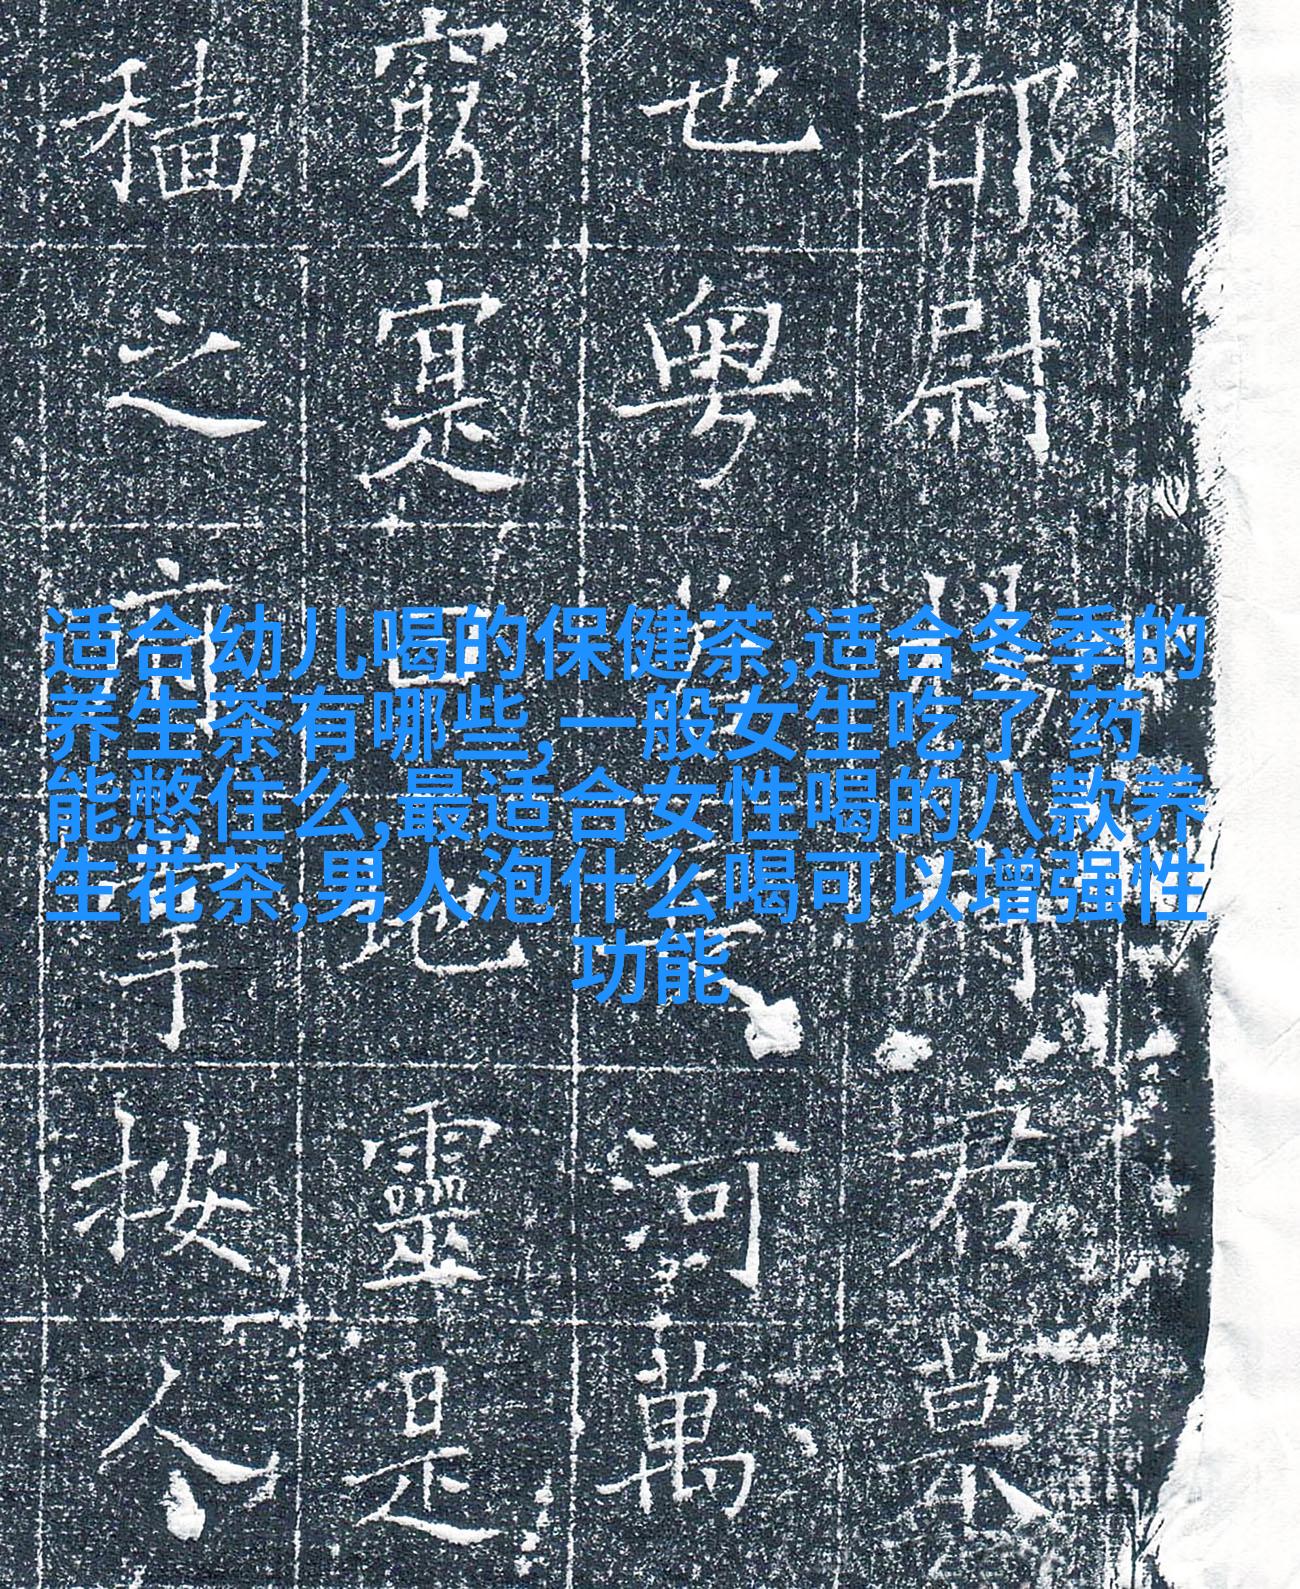 适合幼儿喝的保健茶,适合冬季的
养生茶有哪些,一般女生吃了 药
能憋住么,最适合女性喝的八款养
生花茶,男人泡什么喝可以增强性
功能
都尉君
也粵河萬
窮寔曰地靈是
穡之按人